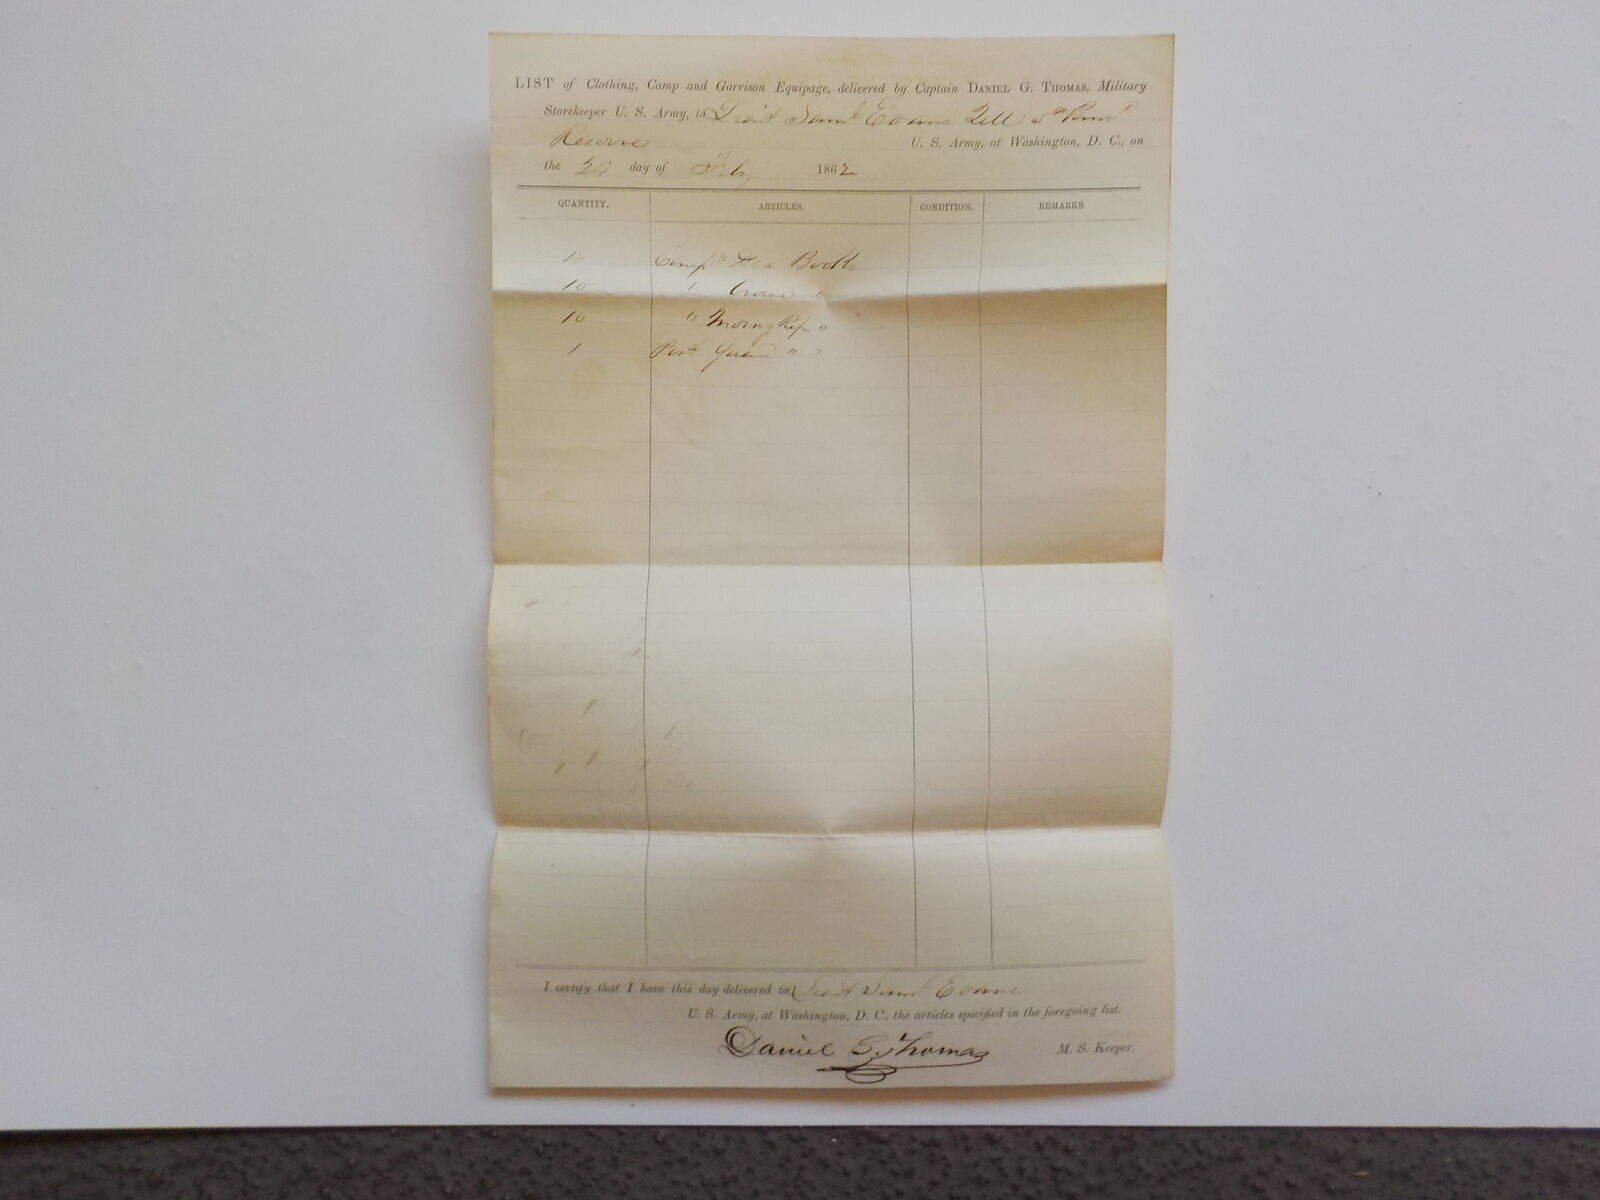 LIST of Clothing, Camp and Garrison Equipage, delivered by Captain DANIEL G. THOMAS, Military
Storekeeper U. S. Army, to Lieut Saml Evans
Reserve U. S. Army, at Washington, D. C., on
the day of Feby 1862
QUANTITY. ARTICLES. CONDITION. REMARKS.
10 Compy Des Books
10 " Order "
10 " Morng Rep "
1 Post Guard " "
I certify that I have this day delivered to Lieut Saml Evans
U. S. Army, at Washington, D. C., the articles specified in the foregoing list.
Daniel G. Thomas M. S. Keeper.